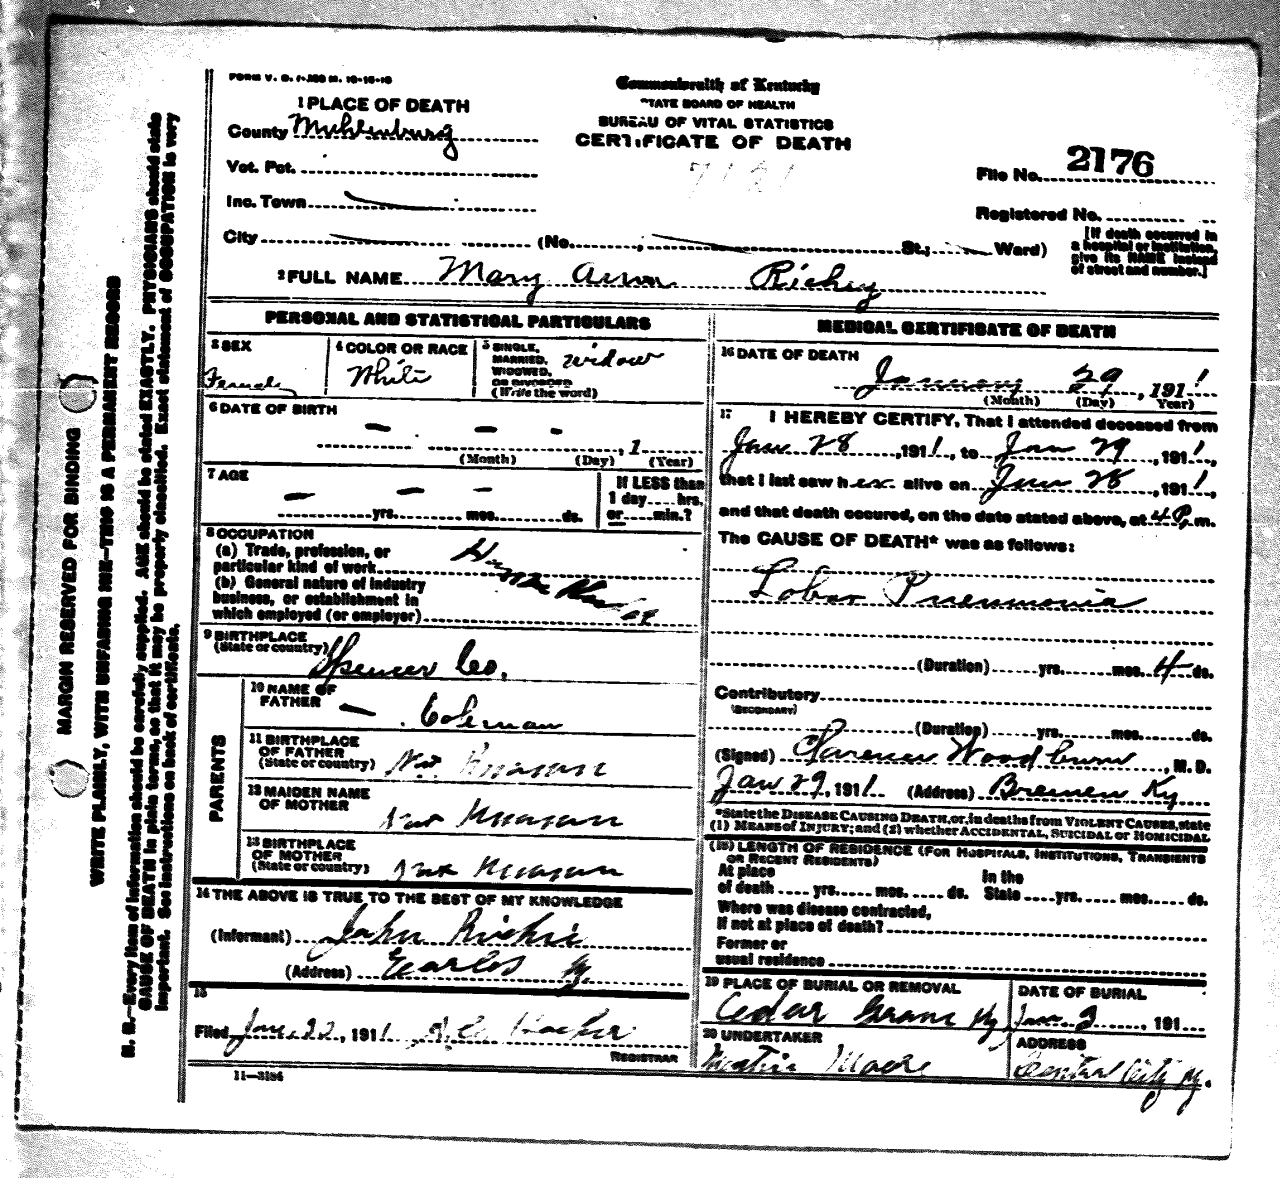 FORM V. S. 1-300 M. 10-15-10
Commonwealth of Kentucky
STATE BOARD OF HEALTH
BUREAU OF VITAL STATISTICS
CERTIFICATE OF DEATH
7121
1 PLACE OF DEATH
County Muhlenburg
Vot. Pct.
Inc. Town
City (No. , St.; Ward)
File No. 2176
Registered No.
[If death occurred in
a hospital or institution,
give its NAME instead
of street and number.]
2 FULL NAME Mary Ann Richey
PERSONAL AND STATISTICAL PARTICULARS
3 SEX
Female
4 COLOR OR RACE
White
5 SINGLE,
MARRIED,
WIDOWED,
OR DIVORCED
(Write the word)
widow
6 DATE OF BIRTH
— — - , 1
(Month) (Day) (Year)
7 AGE
— — -
yrs. mos. ds.
If LESS than
1 day.....hrs.
or.....min.?
8 OCCUPATION
(a) Trade, profession, or
particular kind of work
(b) General nature of industry
business, or establishment in
which employed (or employer)
9 BIRTHPLACE
(State or country) Spencer Co.
PARENTS
10 NAME OF
FATHER — Coleman
11 BIRTHPLACE
OF FATHER
(State or country) Not Known
12 MAIDEN NAME
OF MOTHER Not Known
13 BIRTHPLACE
OF MOTHER
(State or country) Not Known
14 THE ABOVE IS TRUE TO THE BEST OF MY KNOWLEDGE
(Informant) John Richie
(Address) Earles Ky.
15
Filed Jan. 22, 1911
REGISTRAR
11—3184
MEDICAL CERTIFICATE OF DEATH
16 DATE OF DEATH
January 29, 1911
(Month) (Day) Year)
17 I HEREBY CERTIFY, That I attended deceased from
Jan 28, 1911, to Jan 29, 1911,
that I last saw her alive on Jan 28, 1911,
and that death occured, on the date stated above, at 4 P. m.
The CAUSE OF DEATH* was as follows:
Lobar Pneumonia
(Duration) yrs. mos. 4 ds.
Contributory
(SECONDARY)
(Duration) yrs. mos. ds.
(Signed) Clarence Woodburn, M. D.
Jan 29, 1911 (Address) Bremen Ky
*State the DISEASE CAUSING DEATH, or, in deaths from VIOLENT CAUSES, state
(1) MEANS of INJURY; and (2) whether ACCIDENTAL, SUICIDAL or HOMICIDAL
(18) LENGTH OF RESIDENCE (FOR HOSPITALS, INSTITUTIONS, TRANSIENTS
OR RECENT RESIDENTS)
At place
of death .... yrs. mos. ds.
In the
State .... yrs. mos. ds.
Where was disease contracted,
if not at place of death?
Former or
usual residence
19 PLACE OF BURIAL OR REMOVAL
Cedar Ky
DATE OF BURIAL
Jan 2, 191
20 UNDERTAKER
Martin Moore
ADDRESS
Central City Ky.
MARGIN RESERVED FOR BINDING
WRITE PLAINLY, WITH UNFADING INK—THIS IS A PERMANENT RECORD
N. B.—Every item of information should be carefully supplied. AGE should be stated EXACTLY. PHYSICIANS should state
CAUSE OF DEATH in plain terms, so that it may be properly classified. Exact statement of OCCUPATION is very
important. See instructions on back of certificate.